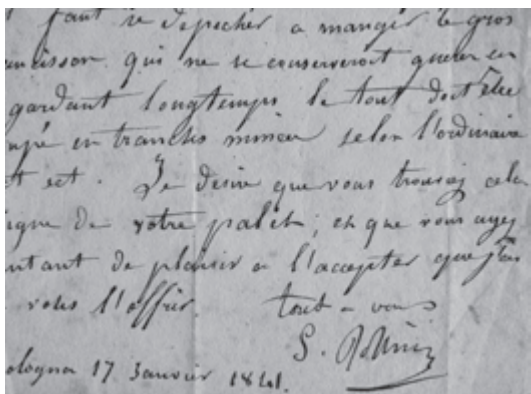 faut se depecher a manger le gros
qui ne se conserveroit guere en
gardant longtemps le tout doit être
en tranches minces selon l'ordinaire
et est. Je desire que vous trouviez cela
igne de votre palet; et que vous ayez
utant de plaisir a l'accepter que j'ai
vous l'offrir. tout a vous
ologna 17 Janvier 1841.